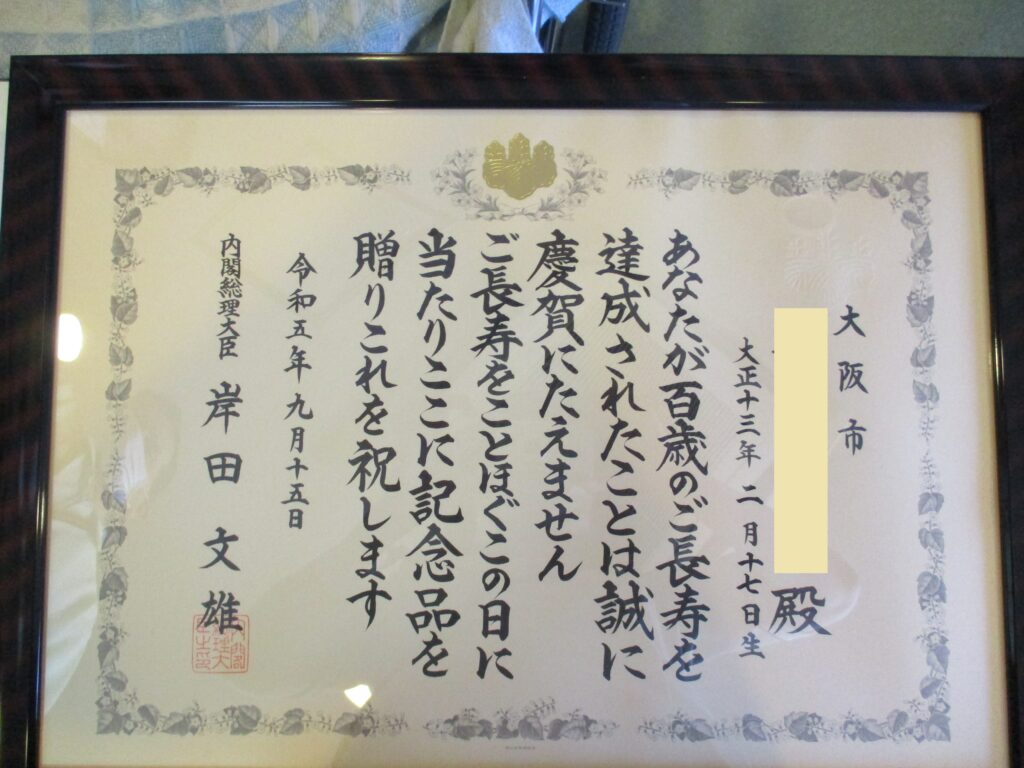 大阪市
殿
大正十三年二月十七日生
あなたが百歳のご長寿を
達成されたことは誠に
慶賀にたえません
ご長寿をことほぐこの日に
当たりここに記念品を
贈りこれを祝します
令和五年九月十五日
内閣総理大臣 岸田文雄